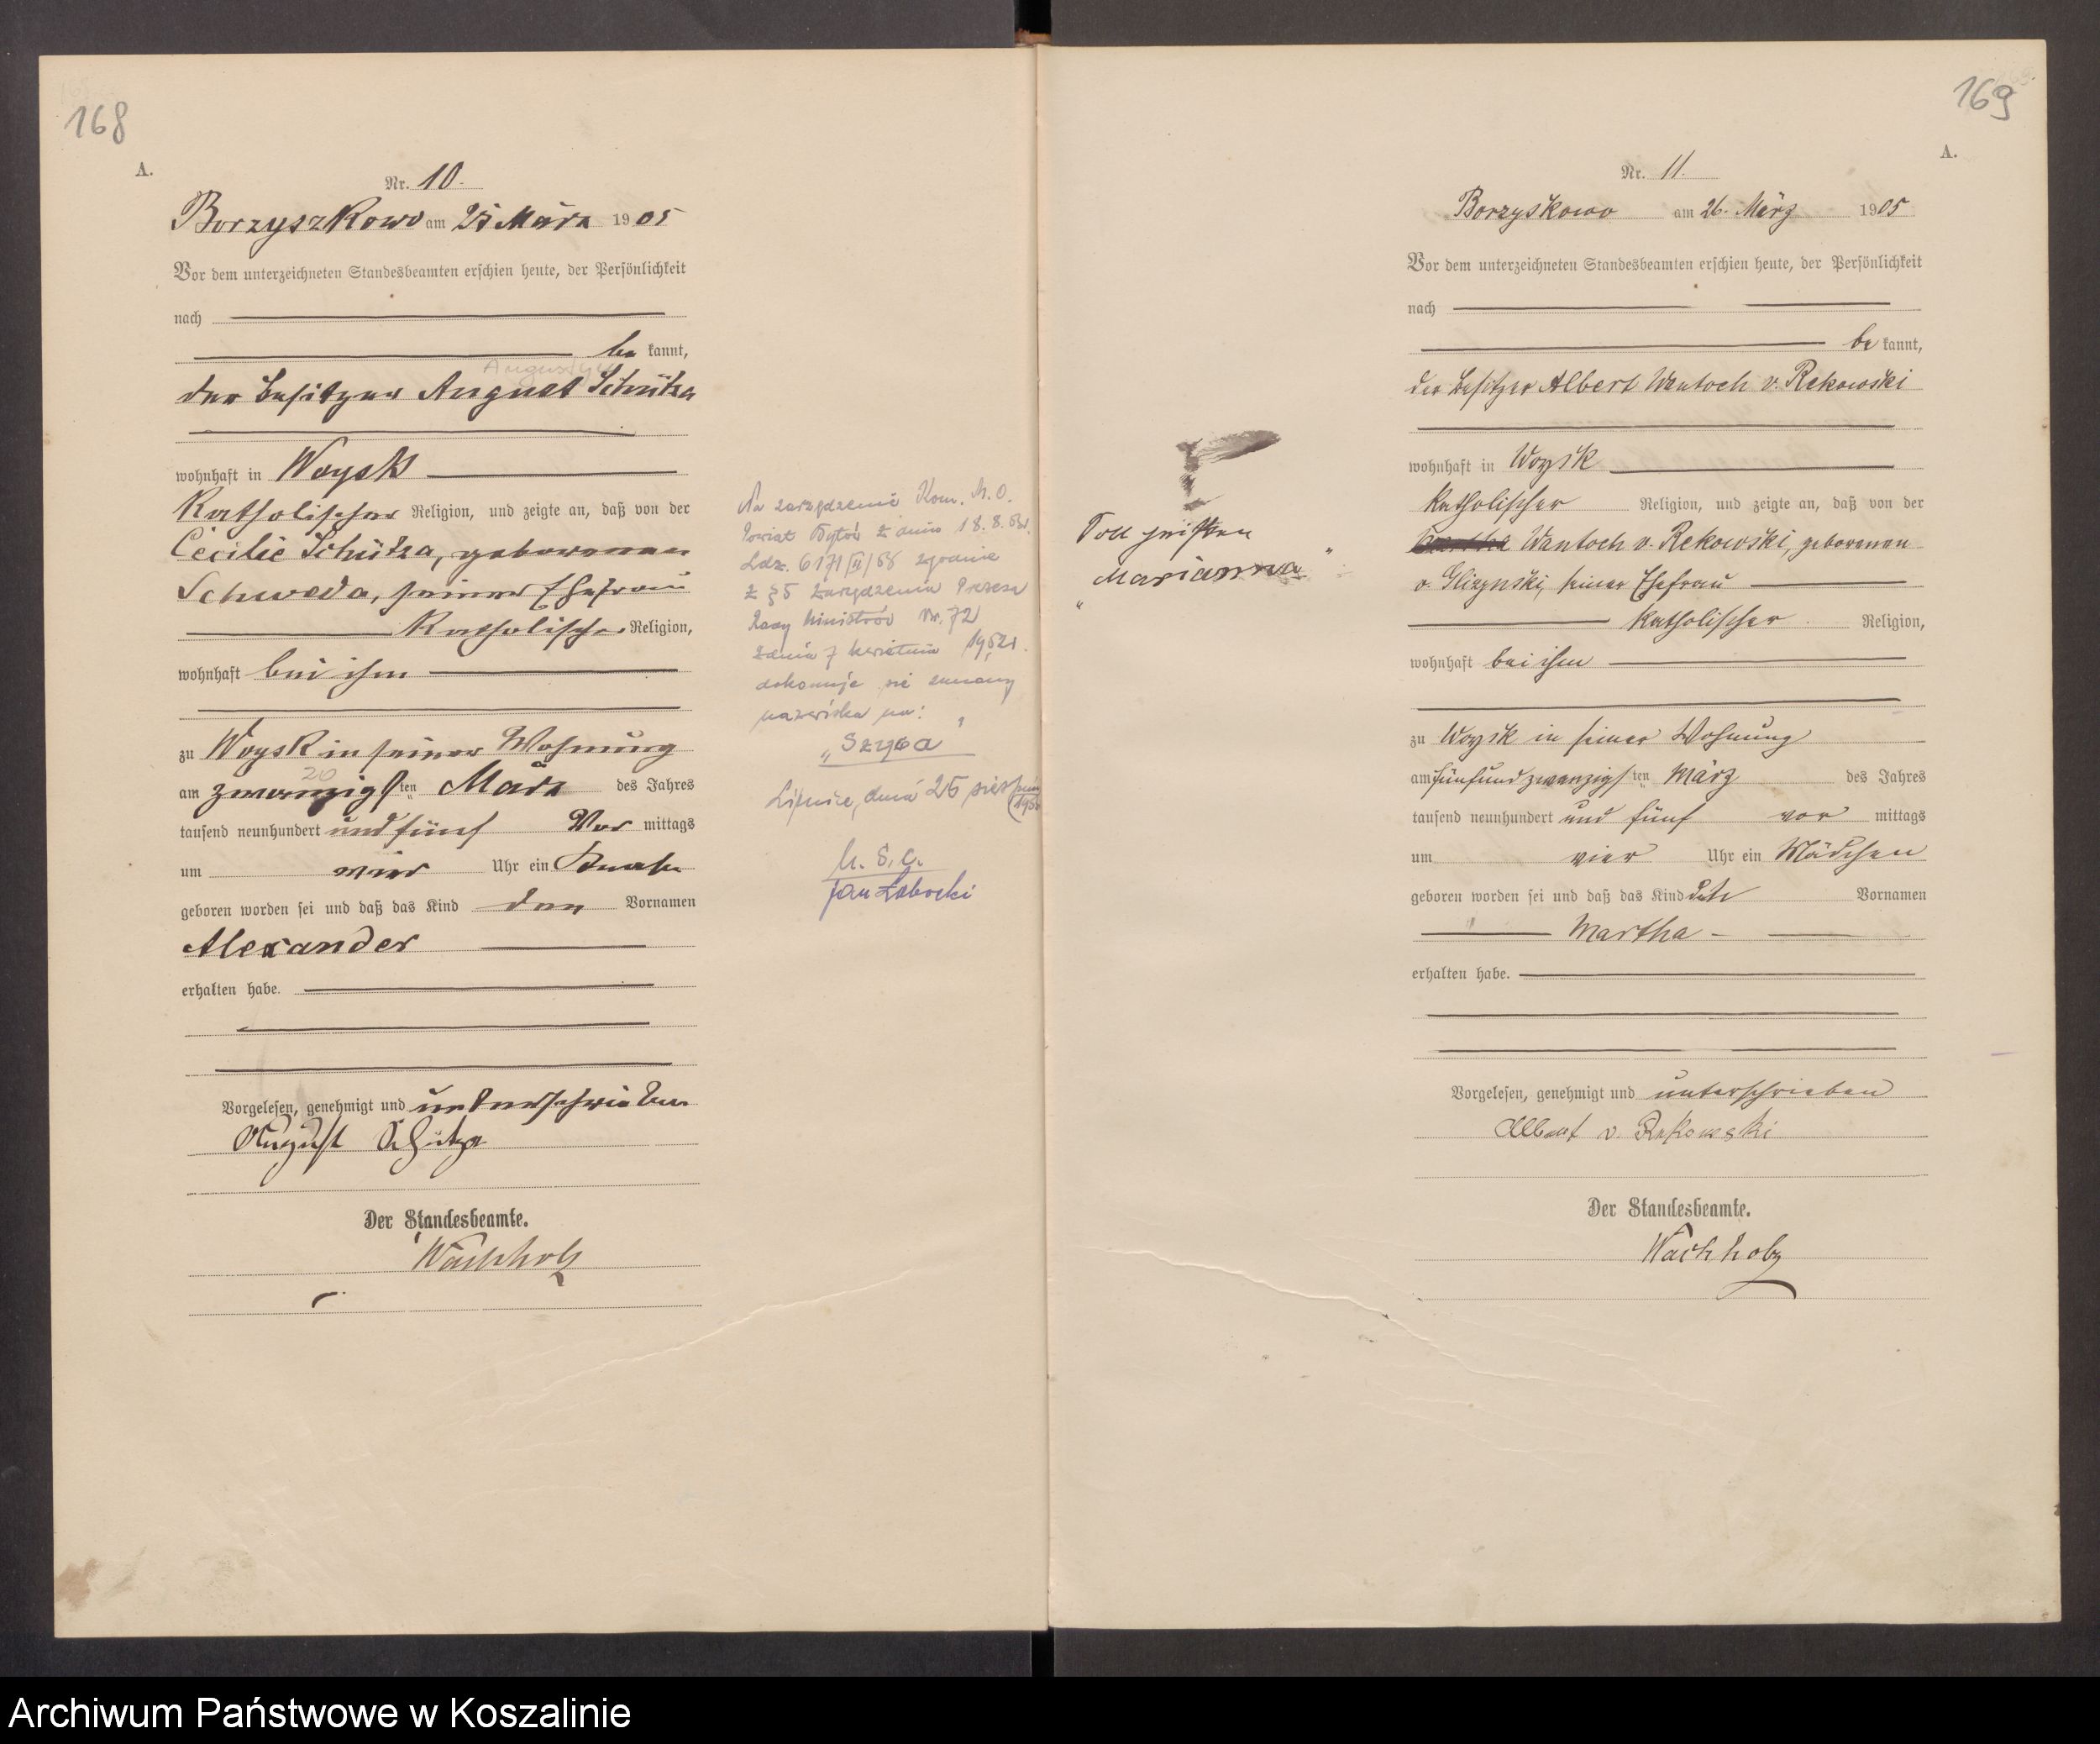 168
A.
Nr. 10.
Borzyszkowo am 25 März 1905
Vor dem unterzeichneten Standesbeamten erschien heute, der Persönlichkeit
nach
be kannt,
Augustyn
der Besitzer August Schütza
wohnhaft in Woysk
Katholischer Religion, und zeigte an, daß von der
Cecilie Schütza, geborenen
Schweda, seiner Ehefrau
Katholischer Religion,
wohnhaft bei ihm
zu Woysk in seiner Wohnung
20
am zwanzigsten März des Jahres
tausend neunhundert und fünf Vor mittags
um vier Uhr ein Knabe
geboren worden sei und daß das Kind den Vornamen
Alexander
erhalten habe.
Vorgelesen, genehmigt und unterschrieben
August Schütza
Der Standesbeamte.
Wachholz
Na zarządzenie Kom. M.O.
Powiat Bytów z dnia 18.8.
Ldz. 6171/II/58 zgodnie
z § 5 zarządzenia Prezesa
Rady Ministrów Nr. 72
z dnia 7 kwietnia 1952 r.
dokonuje się zmiany
nazwiska na:
"Szyca"
Lipnice, dnia 25 sierpnia
U.S.C.
Jan
169
A.
Nr. 11.
Borzyskowo am 26. März 1905
Vor dem unterzeichneten Standesbeamten erschien heute, der Persönlichkeit
nach
be kannt,
der Besitzer Albert Wantoch v. Rekowski
wohnhaft in Woysk
Katholischer Religion, und zeigte an, daß von der
Wantoch v. Rekowski, geborenen
v. Gliszynski, seiner Ehefrau
Katholischer Religion,
wohnhaft bei ihm
zu Woysk in seiner Wohnung
am fünfundzwanzigsten März des Jahres
tausend neunhundert und fünf vor mittags
um vier Uhr ein Mädchen
geboren worden sei und daß das Kind den Vornamen
Martha
erhalten habe.
Vorgelesen, genehmigt und unterschrieben
Albert v. Rekowski
Der Standesbeamte.
Wachholz
Soll heißen
"Marianna"
Archiwum Państwowe w Koszalinie